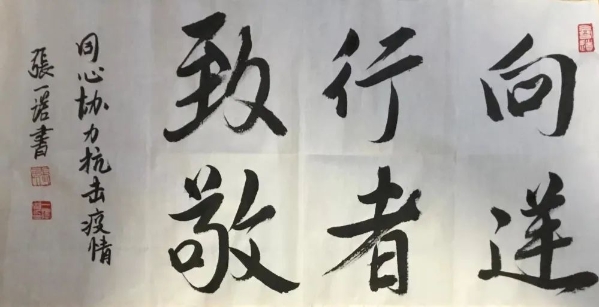 向逆
行者
致敬
同心协力抗击疫情
張一诺書